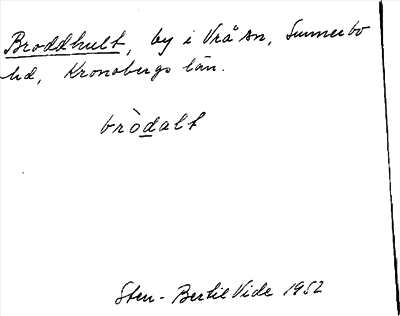 Broddhult, by i Vrå sn, Sunnerbo
hd, Kronobergs län.
bròdalt
Sten-Bertil Vide 1952